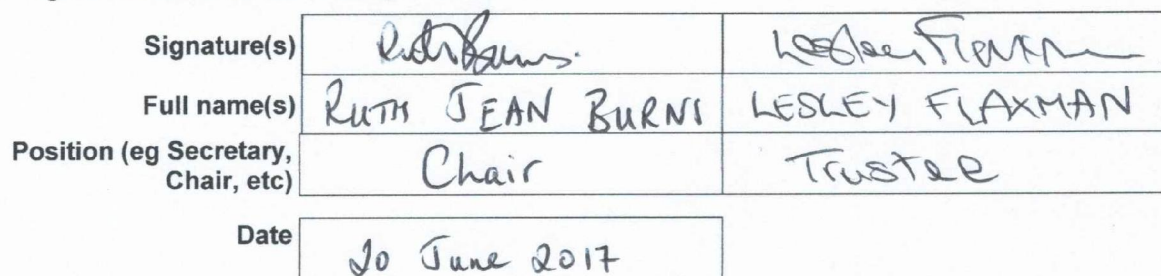 Signature(s) Ruth Burns. Lesley Flaxman
Full name(s) RUTH JEAN BURNS LESLEY FLAXMAN
Position (eg Secretary, Chair Trustee
Chair, etc)
Date 20 June 2017